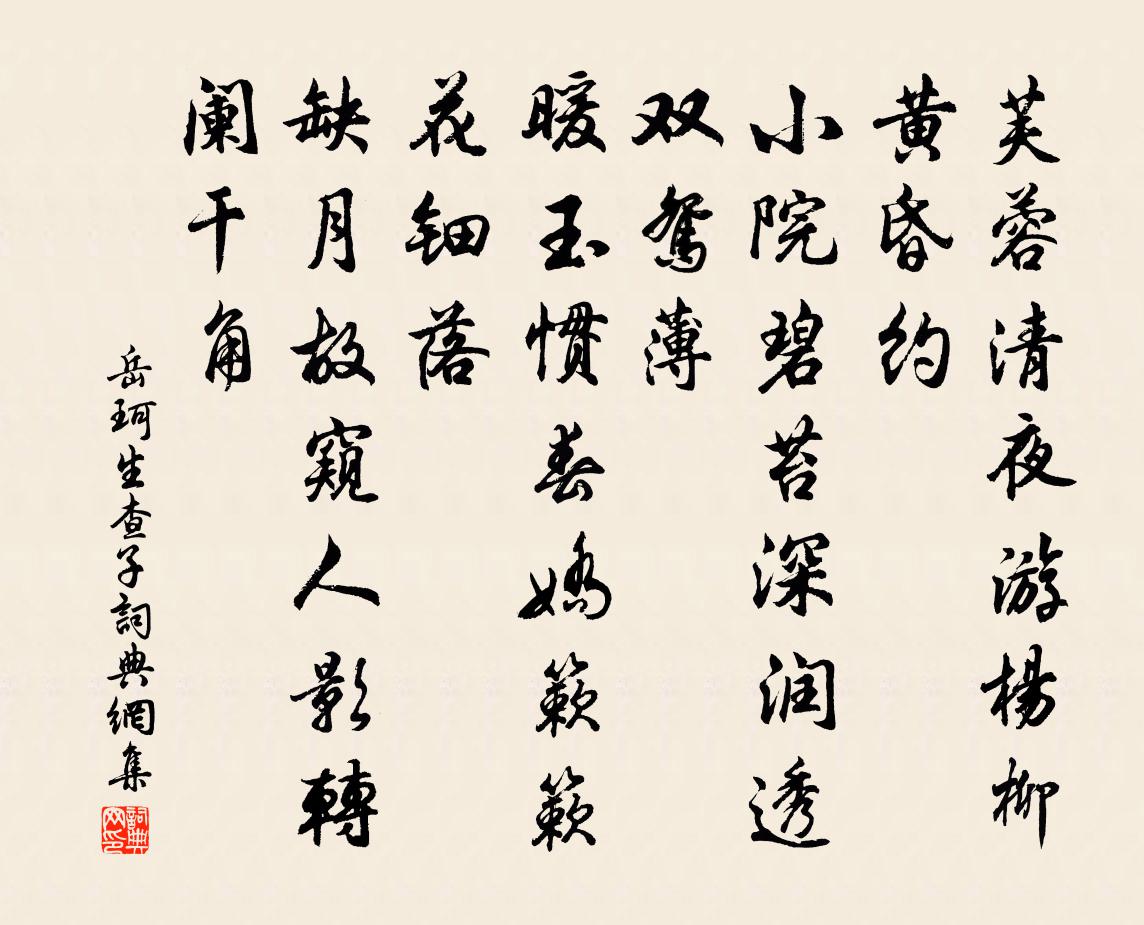 芙蓉清夜游楊柳
黄昏约
小院碧苔深润透
双鸳薄
暖玉慣春嬌簌簌
花钿落
缺月故窺人影轉
阑干角
岳珂生查子詞典網集
詞典网印